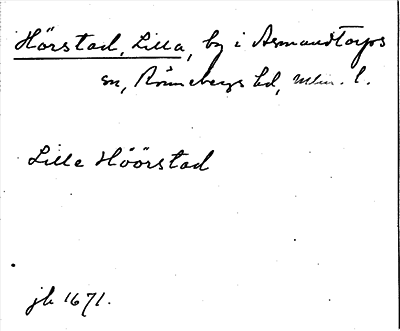 Hörstad, Lilla, by i Asmundtorps
sn, Rönnebergs hd, Mlm. l.
Lille Höörstad
jb 1671.